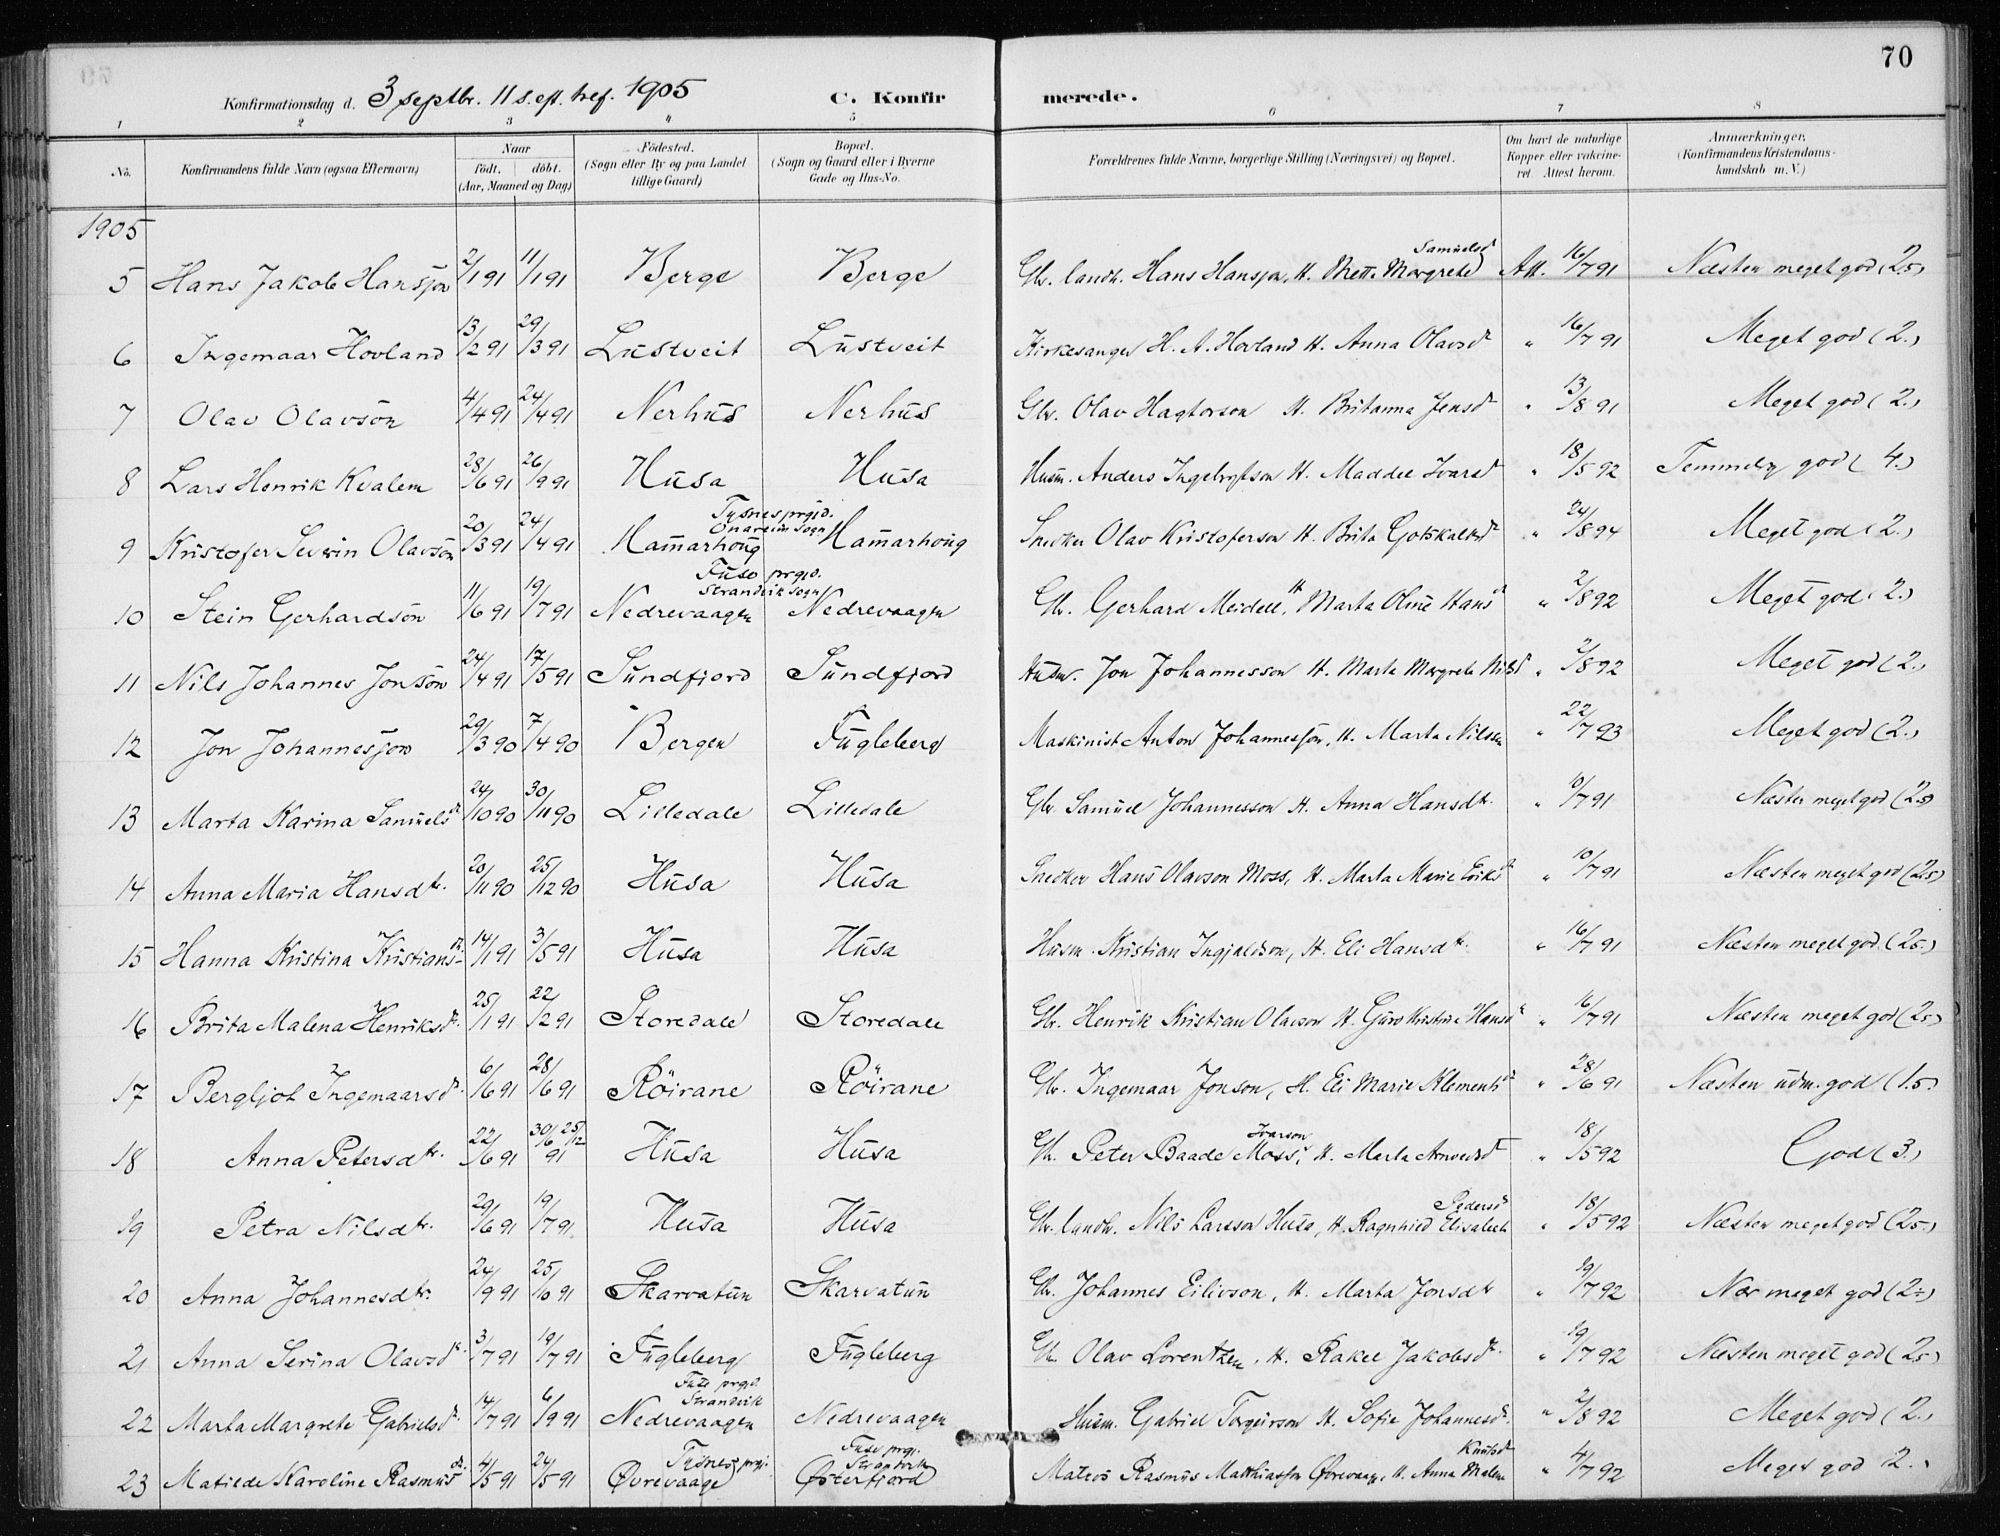 70
Konfirmationsdag d. 3 septbr. 11 s. eft. tref. 1905 C. Konfirmerede.
1 2 3 4 5 6 7 8
No. Konfirmandens fulde Navn (ogsaa Efternavn) Naar födt. döbt. (Aar, Maaned og Dag) Födested. (Sogn eller By og paa Landet tillige Gaard) Bopæl. (Sogn og Gaard eller i Byerne Gade og Hus-No. Forældrenes fulde Navne, borgerlige Stilling (Næringsvei) og Bopæl. Om havt de naturlige Kopper eller vakcineret. Attest herom. Anmærkninger. (Konfirmandens Kristendomskundskab m. V.)
1905
5 Hans Jakob Hansson 2/1 91 11/1 91 Berge Berge Gbr. landh. Hans Hansson, H. Mette Margrete Samuelsd Att. 16/7 91 Næsten meget god (2.5)
6 Ingemaar Hovland 13/2 91 29/3 91 Lustveit Lustveit Kirkesanger H. A. Hovland H. Anna Olavsd " 16/7 91 Meget god (2.)
7 Olav Olavsön 4/4 91 24/4 91 Nerhus Nerhus Gbr. Olav Hagtorson H. Britanna Jensd " 13/8 91 Meget god (2.)
8 Lars Henrik Kvalem 28/6 91 26/9 91 Husa Husa Husm. Anders Ingebrgtson H. Maddel Ivarsd " 18/5 92 Temmelig god (4.)
9 Kristofer Severin Olavsön 20/3 91 24/4 91 Tysnes prgjd. Onareim sogn Hamarhoug Hamarhoug Snedker Olav Kristoferson H. Brita Gotskalksd " 24/8 94 Meget god (2.)
10 Stein Gerhardsön 11/6 91 19/7 91 Fuse prgjd. Strandvik sogn Nedrevaagen Nedrevaagen Gbr. Gerhard Meidell, H. Marta Oline Hansd " 2/8 92 Meget god (2.)
11 Nils Johannes Jonsön 24/4 91 17/5 91 Sundfjord Sundfjord Husm. Jon Johannesson H. Marta Margrete Nilsd " 2/8 92 Meget god (2.)
12 Jon Johannesson 29/3 90 7/4 90 Bergen Fugleberg Maskinist Anton Johannesson, H. Marta Nilsen " 22/7 93 Meget god (2.)
13 Marta Karina Samuelsd 24/10 90 30/11 90 Lilledale Lilledale Gbr. Samuel Johannesson H. Anna Hansdtr. " 10/7 91 Næsten meget god (2.5)
14 Anna Maria Hansdtr. 20/11 90 25/12 90 Husa Husa Snedker Hans Olavson Moss, H. Marta Marie Eriksd " 10/7 91 Næsten meget god (2.5)
15 Hanna Kristina Kristiansdtr. 14/1 91 3/5 91 Husa Husa Husm. Kristian Ingjaldson, H. Eli Hansdtr. " 16/7 91 Næsten meget god (2.5.)
16 Brita Malena Henriksdtr. 25/1 91 22/2 91 Storedale Storedale Gbr. Henrik Kristian Olavson H. Guro Kristine Hansd " 16/7 91 Næsten meget god (2.5)
17 Bergljot Ingemaarsdtr. 6/6 91 28/6 91 Röirane Röirane Gbr. Ingemaar Jonson, H. Eli Marie Klementsd " 28/6 91 Næsten udm. god (1.5.
18 Anna Petersdtr. 22/6 91 30/6 25/12 91 Husa Husa Gbr. Peter Baade Ivarson Moss, H. Marta " 18/5 92 God (3.)
19 Petra Nilsdtr. 29/6 91 19/7 91 Husa Husa Gbr. landh. Nils Larsson Husa, H. Ragnhild Elisabeth Pedersd " 18/5 92 Næsten meget god (2.5.)
20 Anna Johannesdtr. 24/9 91 25/10 91 Skarvatun Skarvatun Gbr. Johannes Eilivson, H. Marta Jonsdtr " 19/7 92 Nær meget god (2÷)
21 Anna Serina Olavsdtr. 3/7 91 19/7 91 Fugleberg Fugleberg Gbr. Olav Lorentzen, H. Rakel Jakobsdtr. " 19/7 92 Næsten meget god (2.5)
22 Marta Margrete Gabrielsdtr. 14/7 91 6/9 91 Fuse prgjd. Strandvik Nedrevaagen Nedrevaagen Husm. Gabriel Torgeirson H. Sofie Johannesdtr. " 2/8 92 Meget god (2.)
23 Matilde Karoline Rasmusdtr. 4/5 91 24/5 91 Tysnes prgj. Øvrevaage Fuse prgj. Strandvik Østerfjord Matros Rasmus Matthiasson Øvrevaage, H. Anna Malene Knutsd " 4/7 92 Meget god (2.)